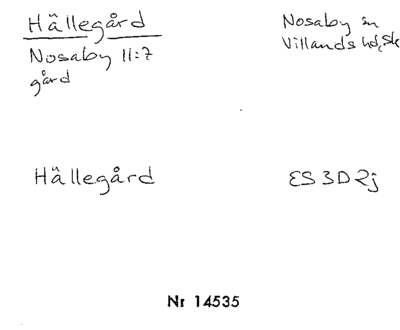 Hällegård
Nosaby 11:7
gård
Nosaby sn
Villands hd, Sk
Hällegård
ES 3D 2j
Nr 14535